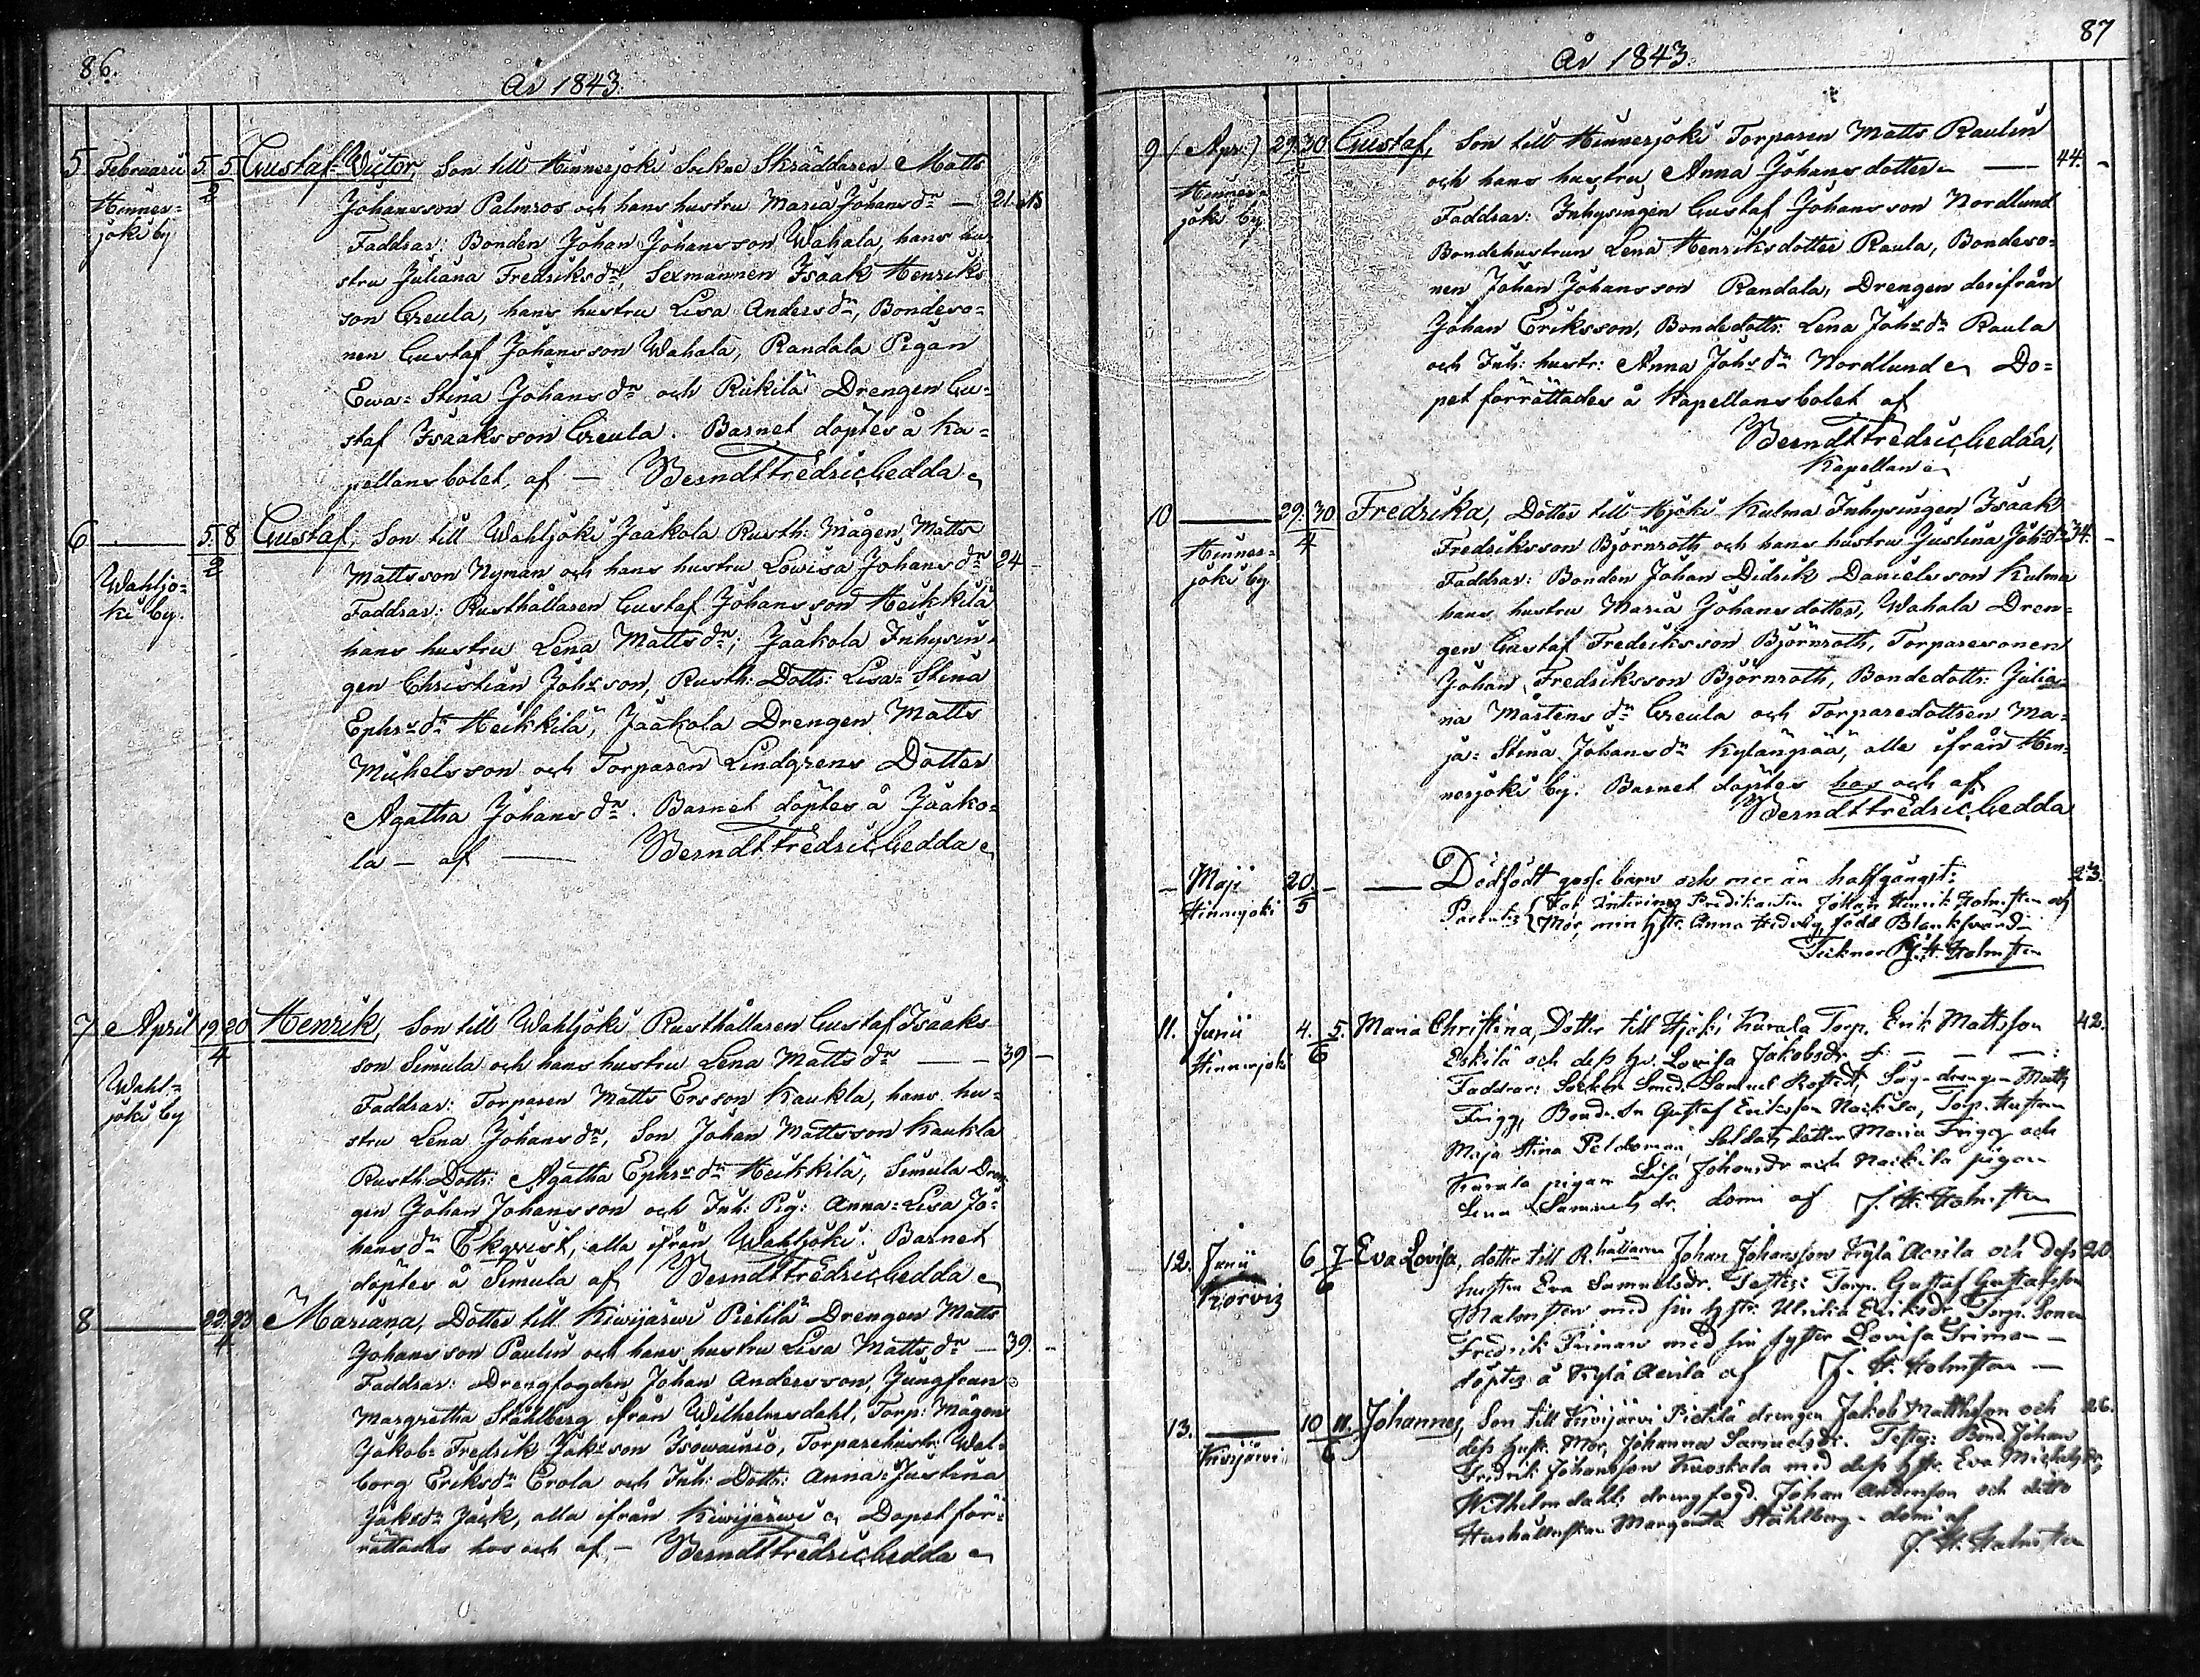 86.
År 1843.
5 Februarii 5. 5 Gustaf Victor, Son till Hinnerjoki Sockne Skräddaren Matts
Hinner= 2 Johansson Palmros och hans hustru Maria Johansdr — 21.
joki by Faddrar: Bonden Johan Johansson Wahala, hans hu=
stru Juliana Fredriksdr, Sexmannen Isaak Henriks
son Greula, hans hustru Lisa Andersdr, Bondeso=
nen Gustaf Johansson Wahala, Randala Pigan
Ewa=Stina Johansdr och Rikilä Drengen Gu=
staf Isaaksson Greula. Barnet döptes å Ka=
pellansbolet, af — Berndt Fredric Gedda
6 — 5. 8 Gustaf, Son till Wahljoki Jaakola Rusth: Mågen Matts
2 Mattsson Nyman och hans hustru Lowisa Johansdr 24 -
Wahljo= Faddrar: Rusthållaren Gustaf Johansson Heikkilä
ki by. hans hustru Lena Mattsdr; Jaakola Inhysin
gen Christian Johsson, Rusth: Dottr: Lisa=Stina
Ephrsdr Heikkilä, Jaakola Drengen Matts
Michelsson och Torparen Lindgrens Dotter
Agatha Johansdr. Barnet döptes å Jaako=
la — af — Berndt Fredric Gedda
7 April 19. 20 Henrik, Son till Wahljoki Rusthållaren Gustaf Isaaks
4 son Simula och hans hustru Lena Mattsdr — — 39 —
Wahl= Faddrar: Torparen Matts Ersson Kaukla, hans hu=
joki by stru Lena Johansdr, Son Johan Mattsson Kaukla
Rusth: Dottr: Agatha Ephrsdr Heikkilä, Simula Dren
gen Johan Johansson och Inh: Pig: Anna=Lisa Jo=
hansdr Ekqvist, alla ifrån Wahljoki. Barnet
döptes å Simula af Berndt Fredric Gedda
8 — 22. 23 Mariana, Dotter till Kiwijärwi Pietilä Drengen Matts
4 Johansson Paulin och hans hustru Lisa Mattsdr — 39. -
Faddrar: Drengfogden Johan Andersson, Jungfrun
Margretha Ståhlberg ifrån Wilhelmsdahl, Torp: Mågen
Jakob=Fredrik Jaksson Isowainio, Torparehustr: Wal=
borg Eriksdr Erola och Inh: Dottr: Anna=Justina
Jaksdr Jack, alla ifrån Kiwijärwi. Dopet för=
rättades hos och af — Berndt Fredric Gedda
87
År 1843.
9 (Apr:) 29. 30 Gustaf, Son till Hinnerjoki Torparen Matts Raulin
Hinner= och hans hustru Anna Johansdotter — 44. -
joki by Faddrar: Inhysingen Gustaf Johansson Nordlund
Bondehustrun Lena Henriksdotter Raula, Bondeso=
nen Johan Johansson Randala, Drengen derifrån
Johan Eriksson, Bondedottr: Lena Johsdr Raula
och Inh: hustr: Anna Johsdr Nordlund Do=
pet förrättades å Kapellansbolet af
Berndt Fredric Gedda,
Kapellan
10 — 29. 30 Fredrika, Dotter till Hjoki Kulma Inhysingen Isaak
Hinner= 4 Fredriksson Björnroth och hans hustru Justina Johsdr 34. -
joki by. Faddrar: Bonden Johan Didrik Danielsson Kulma
hans hustru Maria Johansdotter, Wahala Dren=
gen Gustaf Fredriksson Björnroth, Torparesonen
Johan Fredriksson Björnroth, Bondedottr: Julia=
na Mårtensdr Greula och Torparedottren Ma=
ja=Stina Johansdr Kylänpää, alla ifrån Hin=
nerjoki by. Barnet döptes hos och af
Berndt Fredric Gedda
— Maji 20. — — Dödfödt gosse barn och mer än halfgånget: 23.
Hinnerjoki 5 Parentes Far Interims Predikanten Johan Henrik Holmsten och
Mor, min hstr. Anna Hedvig född Blankfvärd
Tecknar J. H. Holmsten
11. Junii 4. 5. Maria Christina, Dotter till Hjoki Kurala Torp. Erik Mattsson 42.
Hinnerjoki 6 Eskilä och dess hu. Lovisa Jakobsdr
Faddrar: Socken Smed. Samuel Rostedt, Såg drengen Matts
Frigg, Bonde Sn Gustaf Eriksson Naikila, Torp. Hustrun
Maja Stina Peldoman, Soldats dotter Maria Frigg och
Kurala pigan Lisa Johansdr och Naikila pigan
Lena Samuelsdr. domi af J. H. Holmsten
12. Junii 6 7 Eva Lovisa, dotter till R.hållaren Johan Johansson Kylä Acrila och dess 20
Korvis 6 hustru Eva Samuelsdr. Testes: Torp. Gustaf Gustafsson
Malmsten med sin hstr. Ulrika Eriksdr, Torp. Sonen
Fredrik Friman med sin syster Lovisa Friman —
döptes å Kylä Acrila af J. H. Holmsten —
13. — 10 11. Johannes, Son till Kivijärvi Pietilä drengen Jakob Mattsson och 26.
Kivijärvi 6 dess hustr. Mor, Johanna Samuelsdr. Testes: Bond. Johan
Fredrik Johansson Kuoskola med dess hstr. Eva Michelsdr,
Wilhelmsdahls drengfogd. Johan Andersson och ditto
Hushållerskan Margareta Ståhlberg — domi af
J. H. Holmsten